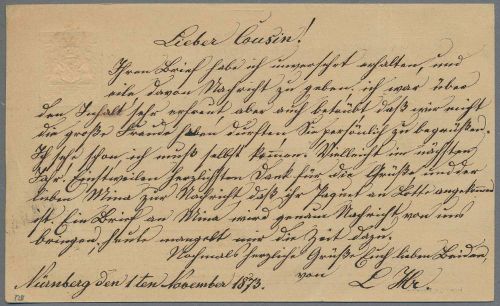 Lieber Cousin!
Ihren Brief habe ich unversehrt erhalten, und
eile davon Nachricht zu geben. ich war über
den Inhalt sehr erfreut aber auch betrübt daß wir nicht
die große Freude haben durften Sie persönlich zu begrüßen.
Ich sehe schon ich muß selbst kommen. Vielleicht im nächsten
Jar. Einstweilen herzlichsten Dank für die Grüße und der
lieben Mina zur Nachricht, daß ihr Paquet an Lotte angekommen
ist. Ein Brief an Mina wird genau Nachricht von uns
bringen, heute mangelt mir die Zeit dazu.
Nochmals herzliche Grüße Euch lieben Beiden,
von L. Hr.
Nürnberg den 1ten November 1873.